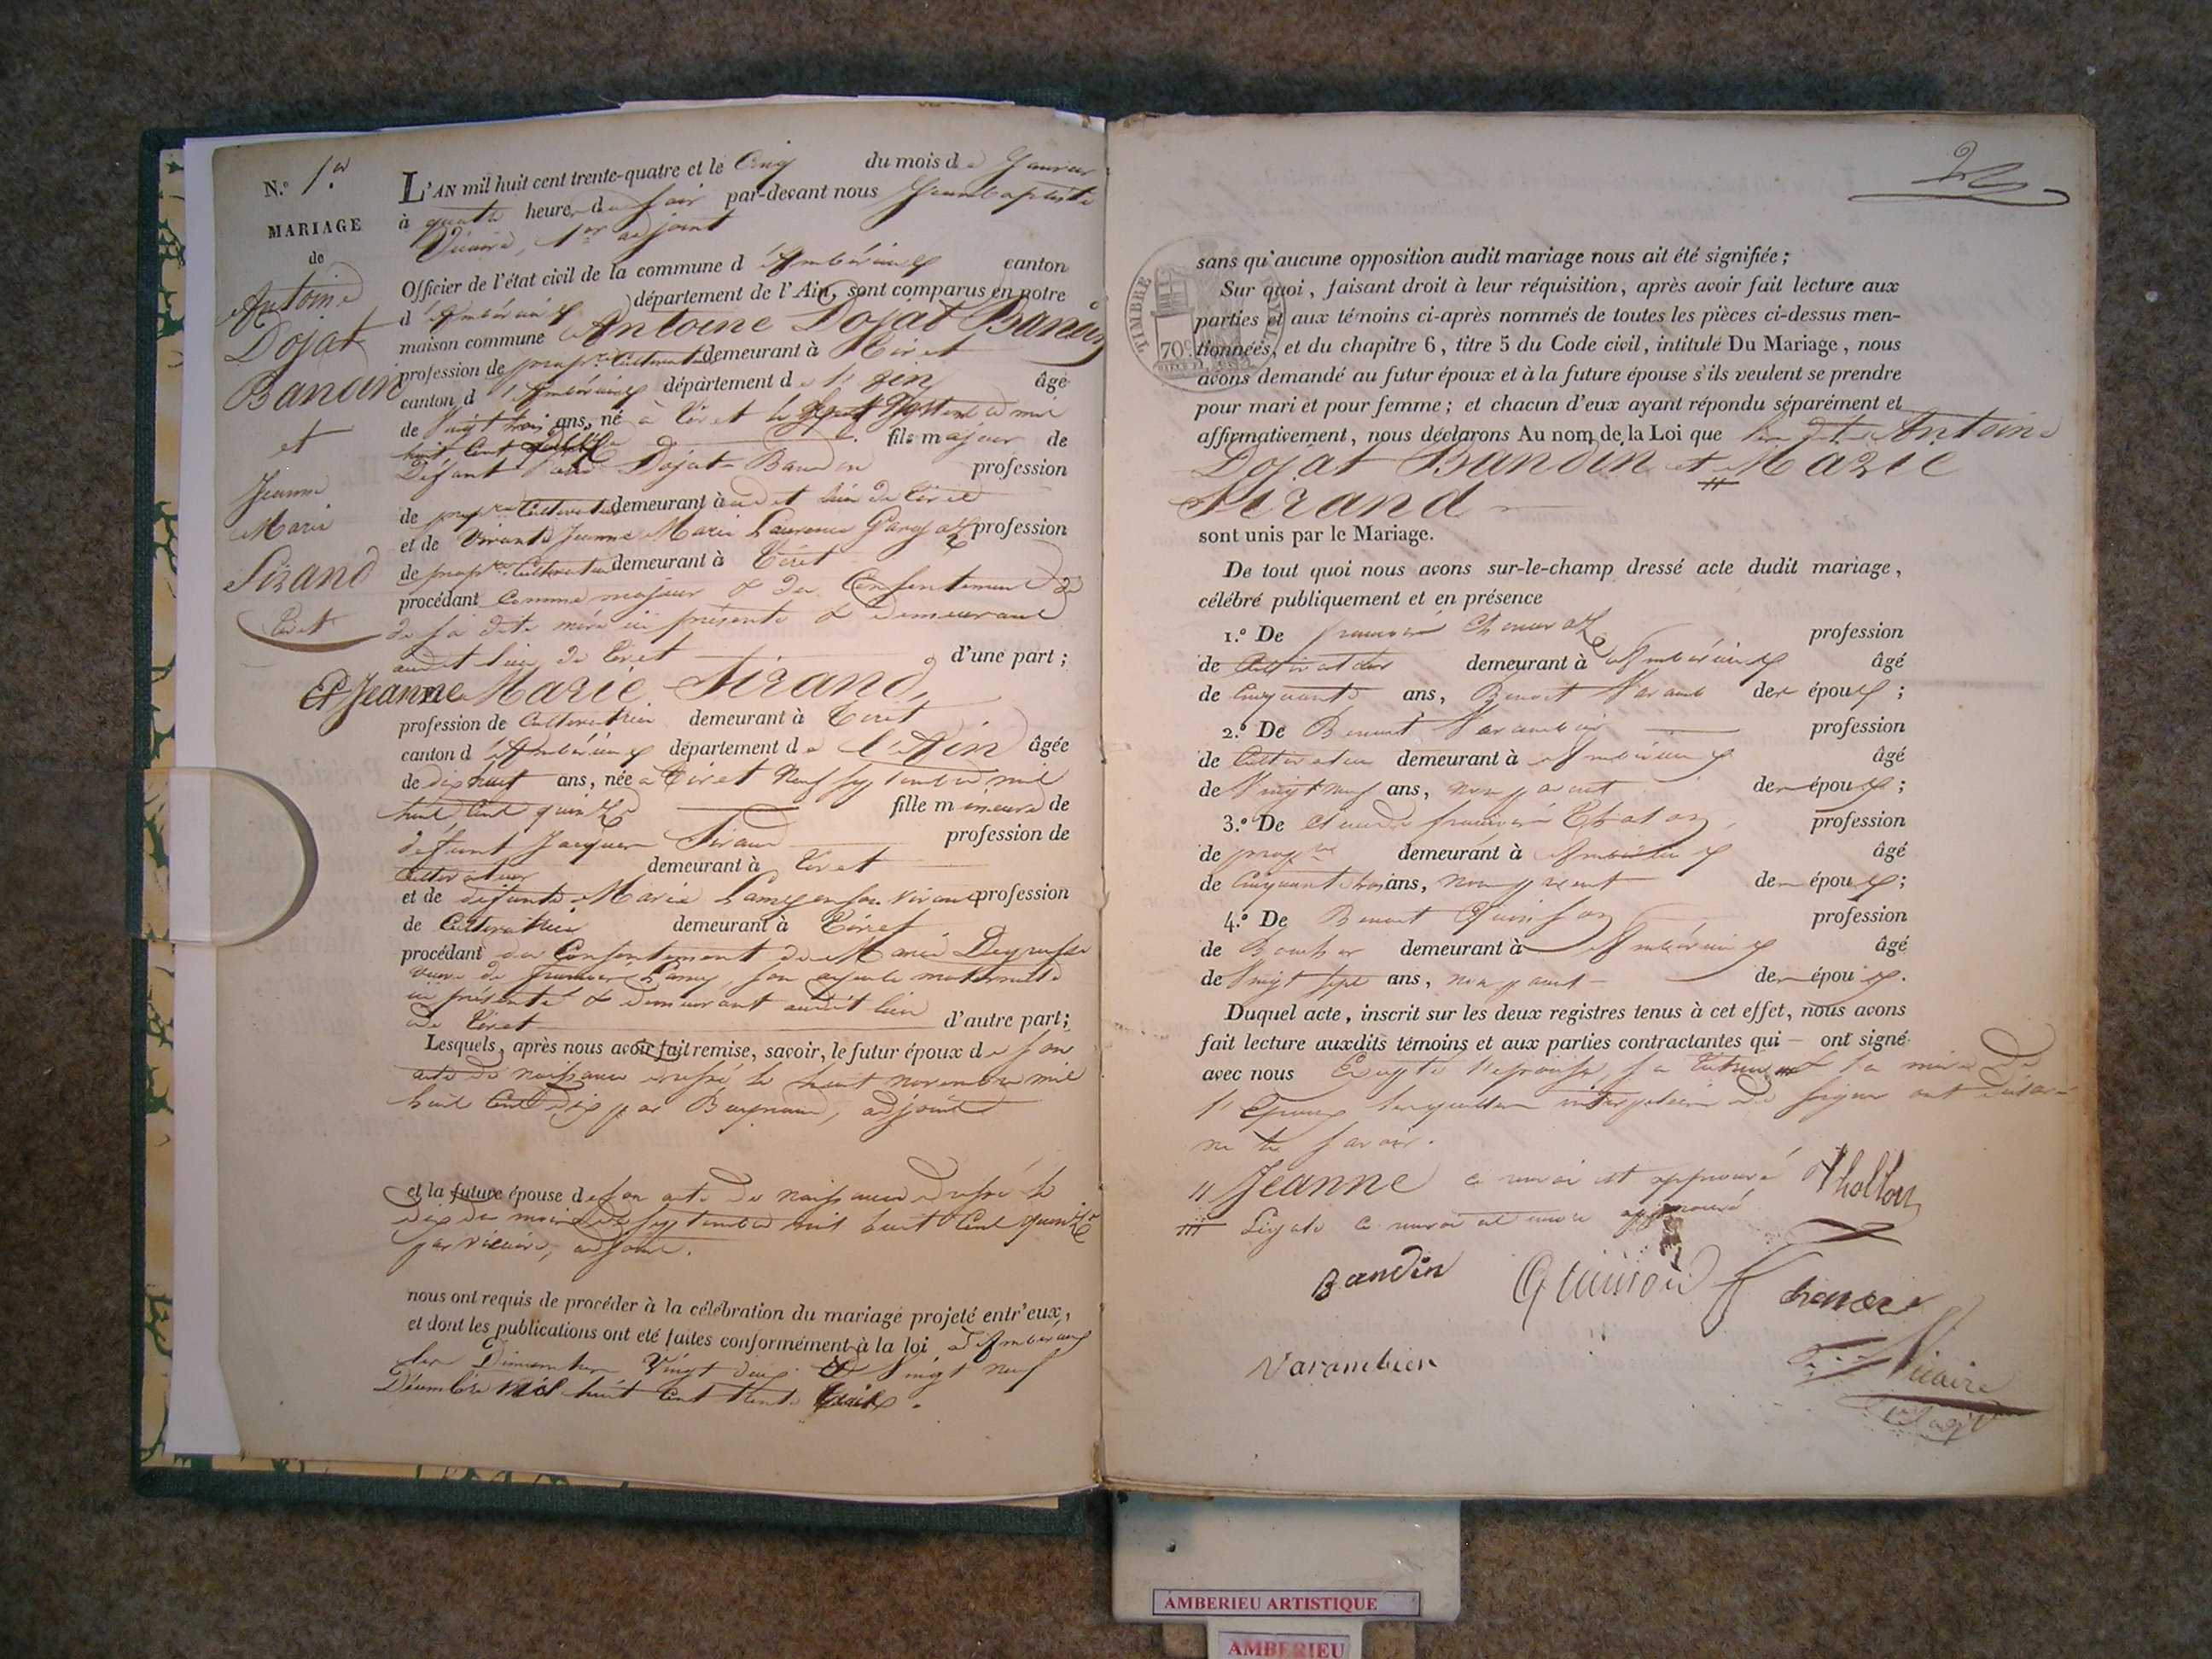 N.° 1.er
MARIAGE
de
Antoine
Dojat
Baudin
et
Jeanne
Marie
Sirand
Tiret
L'AN mil huit cent trente-quatre et le Cinq du mois de Janvier
à quatre heures du soir par-devant nous Jean Baptiste
Vicaire, 1er adjoint
Officier de l'état civil de la commune d'Ambérieux canton
d'Ambérieux département de l'Ain, sont comparus en notre
maison commune Antoine Dojat Baudin
profession de propre Cultivateur demeurant à Tiret
canton d'Ambérieux département de l'Ain âgé
de Vingt trois ans, né à Tiret le mil
huit Cent fils majeur de
Défunt Dojat-Baudin profession
de propre Cultivateur demeurant à audit lieu de Tiret
et de Vivante Jeanne Marie Laurence profession
de propre Cultivateur demeurant à Tiret
procédant Comme majeur & du Consentement de
de sa dite mère ici présente & demeurant
audit lieu de Tiret d'une part ;
Et Jeanne Marie Sirand,
profession de Cultivatrice demeurant à Tiret
canton d'Ambérieux département de l'Ain âgée
de dix huit ans, née à Tiret Neuf septembre mil
huit Cent quinze fille mineure de
défunt Jacques Sirand profession de
Cultivateur demeurant à Tiret
et de défunte Marie Lamy en son vivant profession
de Cultivatrice demeurant à Tiret
procédant du Consentement de Marie
veuve de Lamy, son ayeule maternelle
ici présente & demeurant audit lieu
de Tiret d'autre part ;
Lesquels, après nous avoir fait remise, savoir, le futur époux de son
acte de naissance dressé le huit novembre mil
huit Cent dix par adjoint
et la future épouse de son acte de naissance dressé le
dix du mois de septembre mil huit Cent quinze
par Vicaire, adjoint.
nous ont requis de procéder à la célébration du mariage projeté entr'eux,
et dont les publications ont été faites conformément à la loi d'Ambérieux
les Dimanches Vingt deux & Vingt neuf
Décembre mil huit Cent trente trois.
TIMBRE
70c
sans qu'aucune opposition audit mariage nous ait été signifiée ;
Sur quoi, faisant droit à leur réquisition, après avoir fait lecture aux
parties et aux témoins ci-après nommés de toutes les pièces ci-dessus men-
tionnées, et du chapitre 6, titre 5 du Code civil, intitulé Du Mariage, nous
avons demandé au futur époux et à la future épouse s'ils veulent se prendre
pour mari et pour femme ; et chacun d'eux ayant répondu séparément et
affirmativement, nous déclarons Au nom de la Loi que les dits Antoine
Dojat Baudin et Marie
Sirand
sont unis par le Mariage.
De tout quoi nous avons sur-le-champ dressé acte dudit mariage,
célébré publiquement et en présence
1.° De profession
de Cultivateur demeurant à Ambérieux âgé
de Cinquante ans, époux ;
2.° De Benoit Varambier profession
de Cultivateur demeurant à Ambérieux âgé
de Vingt neuf ans, non parent des époux ;
3.° De Claude profession
de propre demeurant à Ambérieux âgé
de Cinquante trois ans, non parent des époux ;
4.° De Benoit Quinson profession
de Boucher demeurant à Ambérieux âgé
de Vingt sept ans, non parent des époux.
Duquel acte, inscrit sur les deux registres tenus à cet effet, nous avons
fait lecture auxdits témoins et aux parties contractantes qui — ont signé
avec nous Excepté l'épouse, sa tutrice & la mère de
l'Epoux lesquelles interpellées de signer ont déclaré
ne le savoir.
Jeanne ce renvoi est approuvé
ce renvoi approuvé
Baudin
Quinson
Varambier
Vicaire
AMBERIEU ARTISTIQUE
AMBERIEU